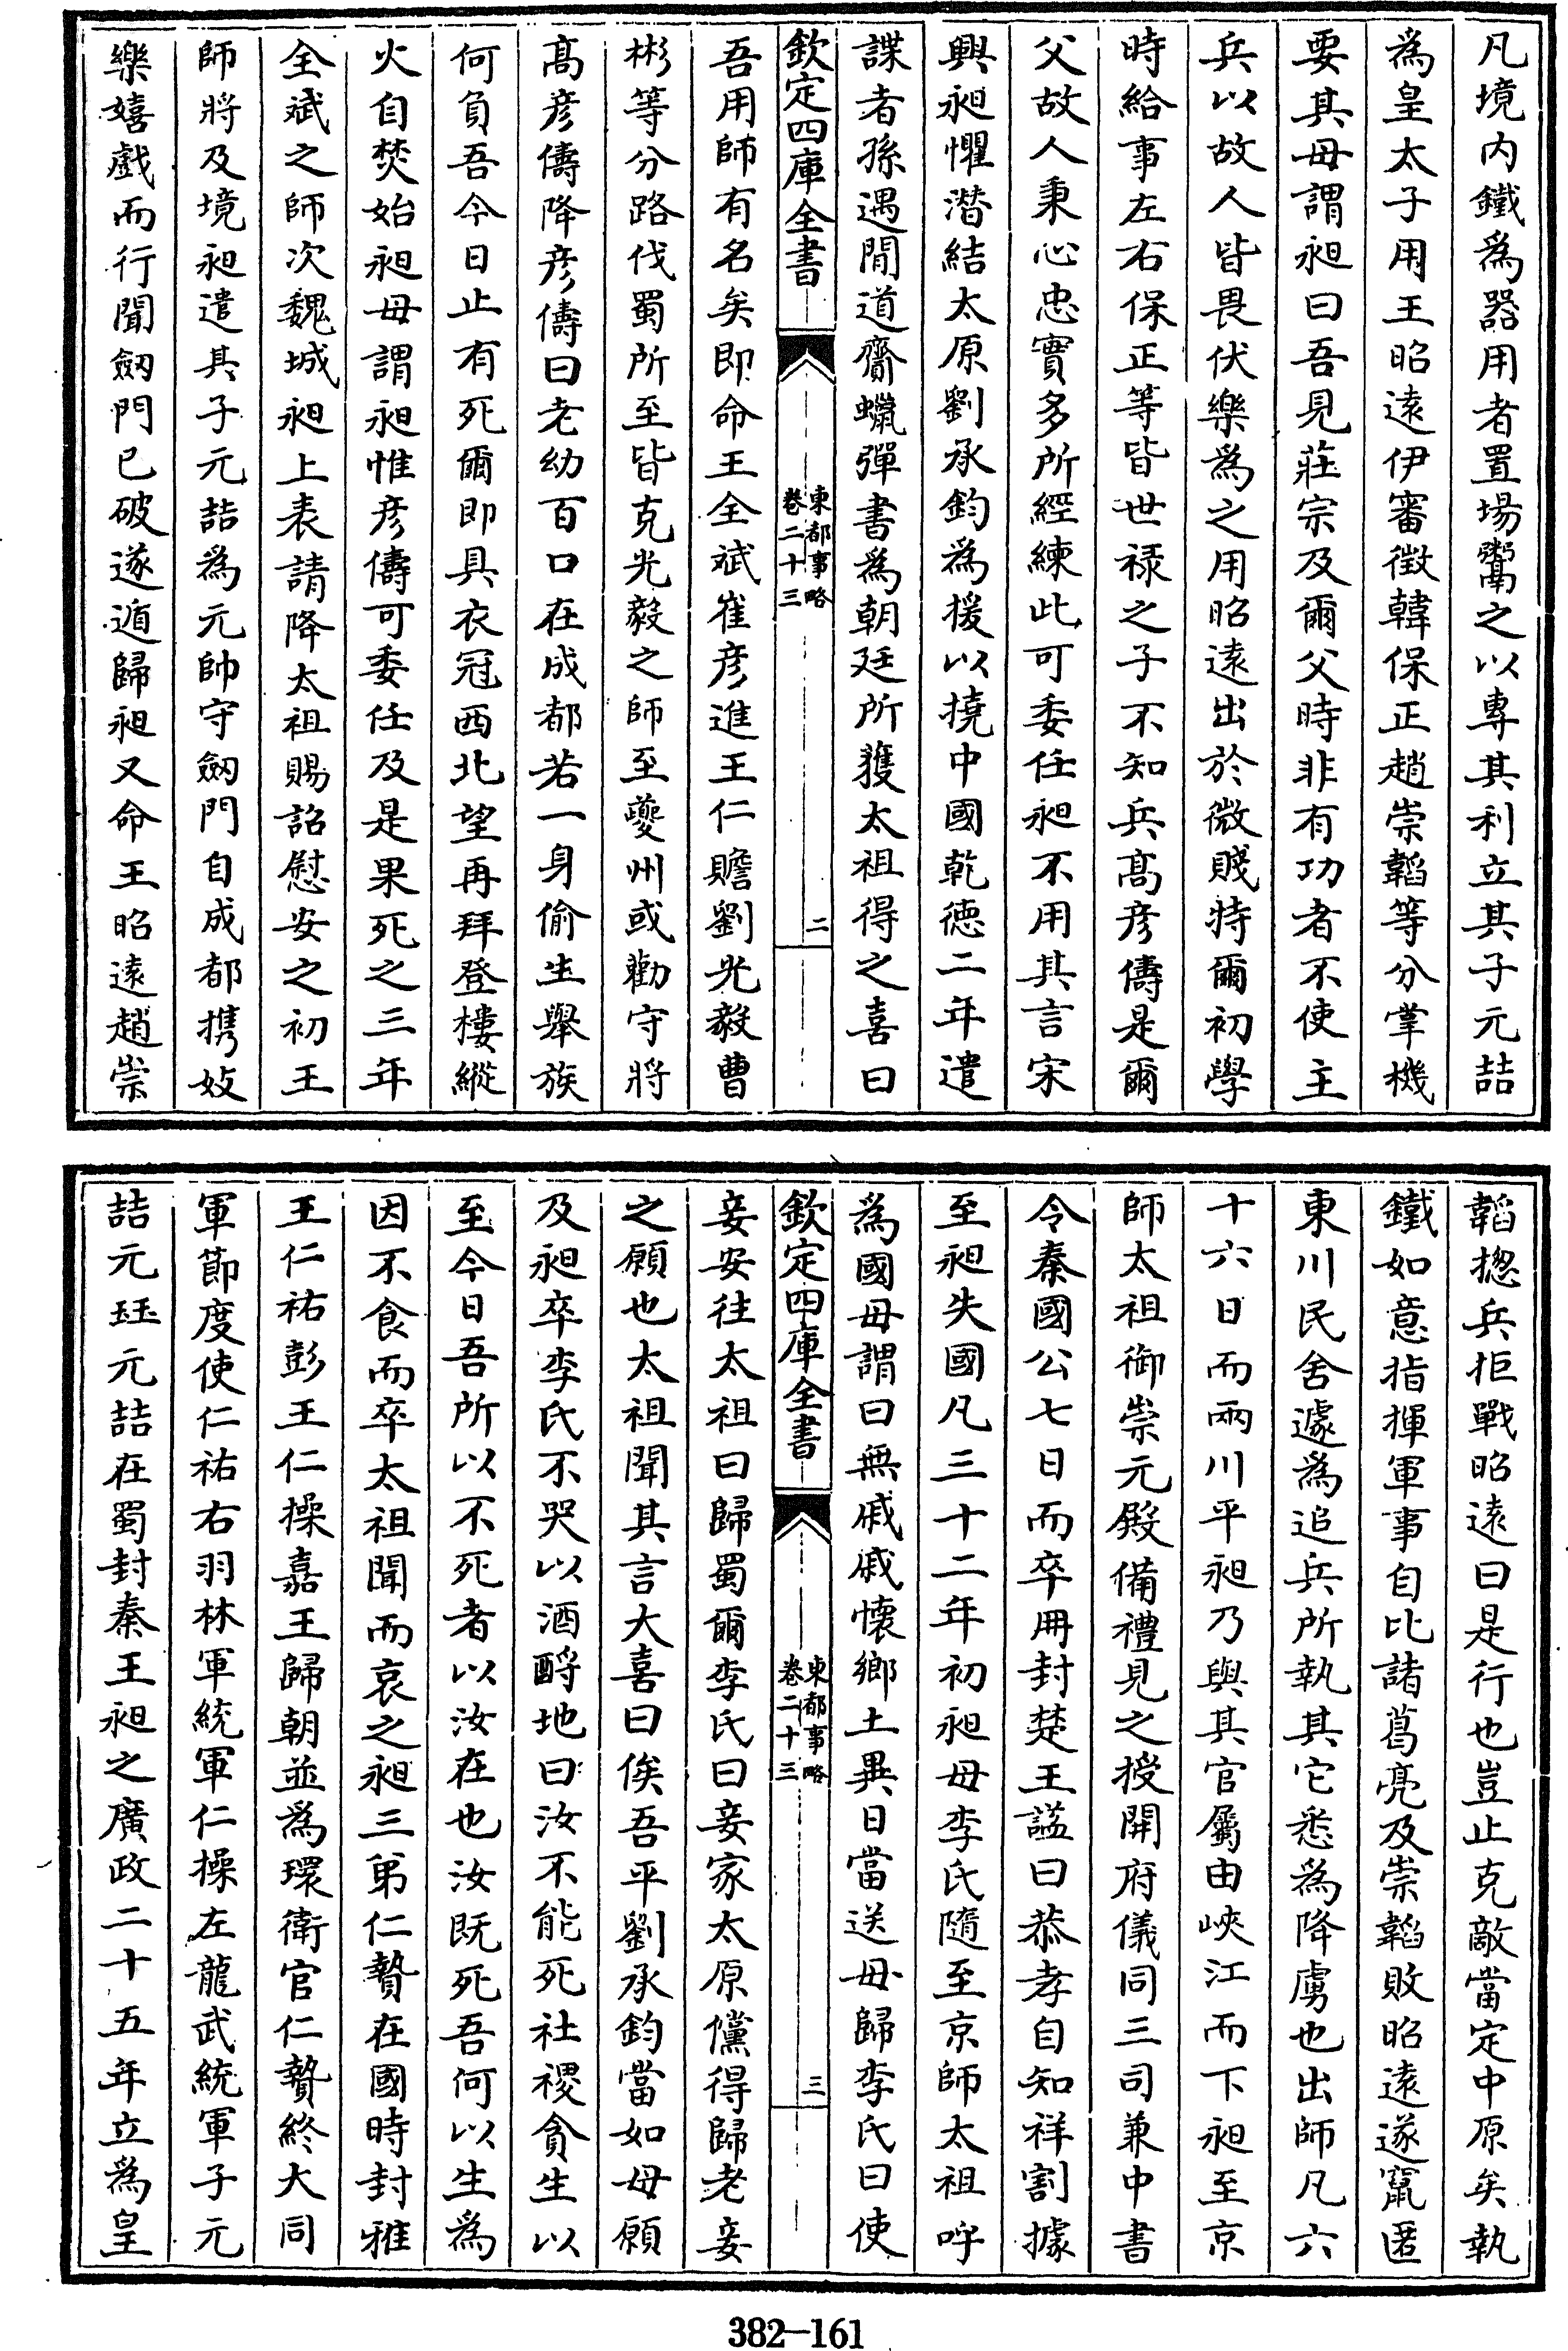 凡境内鐵為器用者置場鬻之以專其利立其子元喆
為皇太子用王昭遠伊審徴韓保正趙崇韜等分掌機
要其母謂昶曰吾見莊宗及爾父時非有功者不使主
兵以故人皆畏伏樂為之用昭遠出於微賤特爾初學
時給事左右保正等皆世禄之子不知兵髙彦儔是爾
父故人秉心忠實多所經練此可委任昶不用其言宋
興昶懼潜結太原劉承鈞為援以撓中國乾徳二年遣
諜者孫遇間道齎蠟彈書為朝廷所獲太祖得之喜曰
欽定四庫全書
東都事略
卷二十三
二
吾用師有名矣即命王全斌崔彦進王仁贍劉光毅曹
彬等分路伐蜀所至皆克光毅之師至夔州或勸守將
髙彦儔降彦儔曰老幼百口在成都若一身偷生舉族
何負吾今日止有死爾即具衣冠西北望再拜登樓縱
火自焚始昶母謂昶惟彦儔可委任及是果死之三年
全斌之師次魏城昶上表請降太祖賜詔慰安之初王
師將及境昶遣其子元喆為元帥守劔門自成都携妓
樂嬉戲而行聞劔門已破遂遁歸昶又命王昭遠趙崇
韜揔兵拒戰昭遠曰是行也豈止克敵當定中原矣執
鐵如意指揮軍事自比諸葛亮及崇韜敗昭遠遂竄匿
東川民舍遽為追兵所執其它悉為降虜也出師凡六
十六日而兩川平昶乃與其官屬由峽江而下昶至京
師太祖御崇元殿備禮見之授開府儀同三司兼中書
令秦國公七日而卒冊封楚王諡曰恭孝自知祥割據
至昶失國凡三十二年初昶母李氏隨至京師太祖呼
為國母謂曰無戚戚懷鄉土異日當送母歸李氏曰使
欽定四庫全書
東都事略
卷二十三
三
妾安往太祖曰歸蜀爾李氏曰妾家太原儻得歸老妾
之願也太祖聞其言大喜曰俟吾平劉承鈞當如母願
及昶卒李氏不哭以酒酹地曰汝不能死社稷貪生以
至今日吾所以不死者以汝在也汝既死吾何以生為
因不食而卒太祖聞而哀之昶三弟仁贄在國時封雅
王仁祐彭王仁操嘉王歸朝並為環衛官仁贄終大同
軍節度使仁祐右羽林軍統軍仁操左龍武統軍子元
喆元珏元喆在蜀封秦王昶之廣政二十五年立為皇
382—161